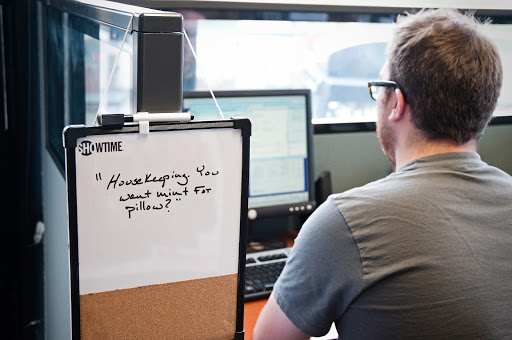 SHOWTIME
"Housekeeping. You
want mint for
pillow?"